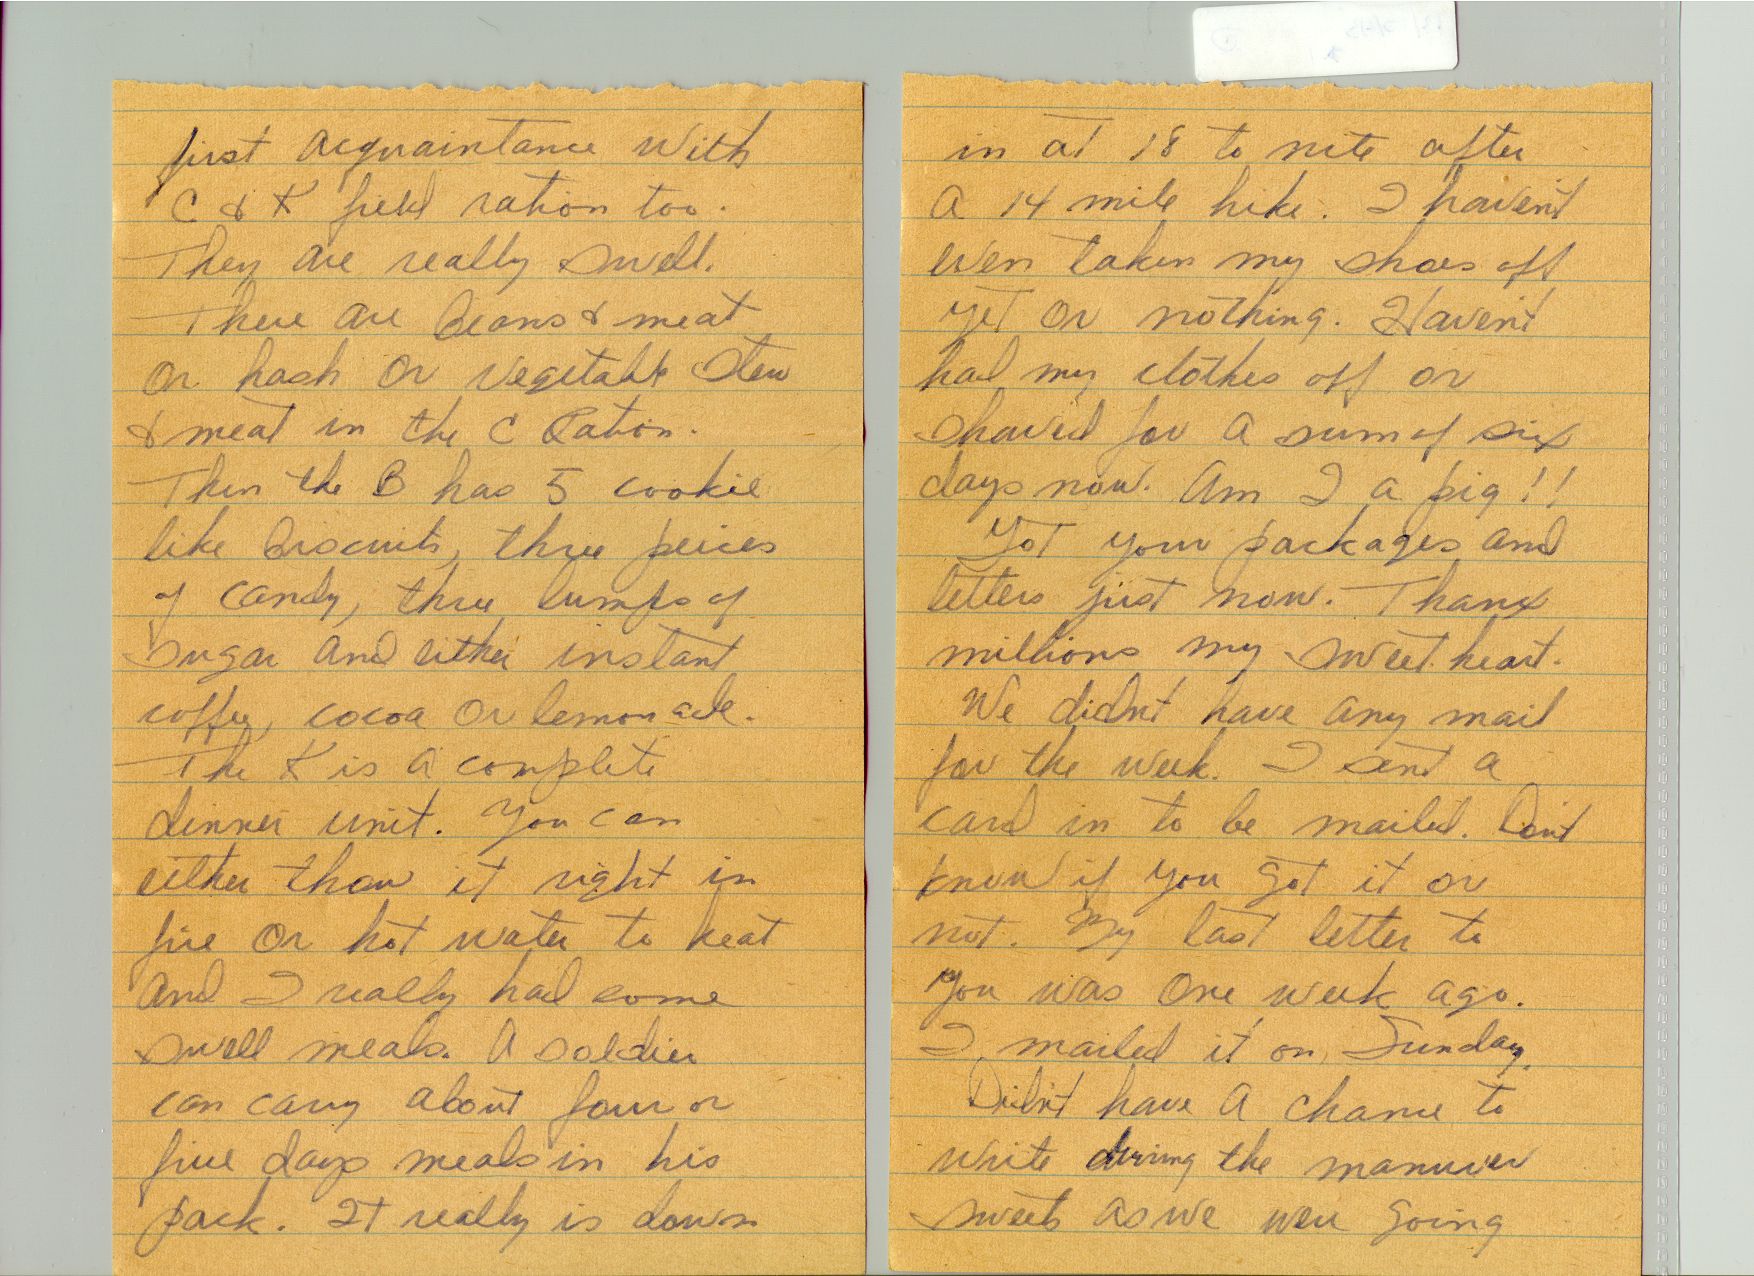 first acquaintance with
C & K field ration too.
They are really swell.
There are Beans & meat
or hash or vegetable stew
& meat in the C Ration.
Then the B has 5 cookie
like biscuits, three peices
of candy, three lumps of
sugar and either instant
coffee, cocoa or lemonade.
The K is a complete
dinner unit. You can
either thow it right in
fire or hot water to heat
and I really had some
swell meals. A soldier
can carry about four or
five days meals in his
pack. It really is down
in at 18 to nite after
a 14 mile hike. I haven't
even taken my shoes off
yet or nothing. Haven't
had my clothes off or
shaved for a sum of six
days now. Am I a pig!!
Got your packages and
letters just now. Thanx
millions my sweet heart.
We didn't have any mail
for the week. I sent a
card in to be mailed. Don't
know if you got it or
not. My last letter to
you was one week ago.
I mailed it on Sunday.
Didn't have a chance to
write during the manuver
sweets as we were going